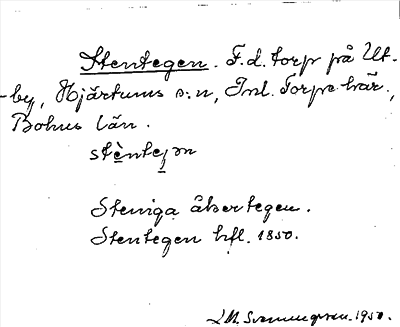 Stentegen. F.d. torp på Ut-
-by, Hjärtums s:n, Inl. Torpe här.,
Bohus län.
Steniga åkertegen.
Stentegen hfl. 1850.
1950.